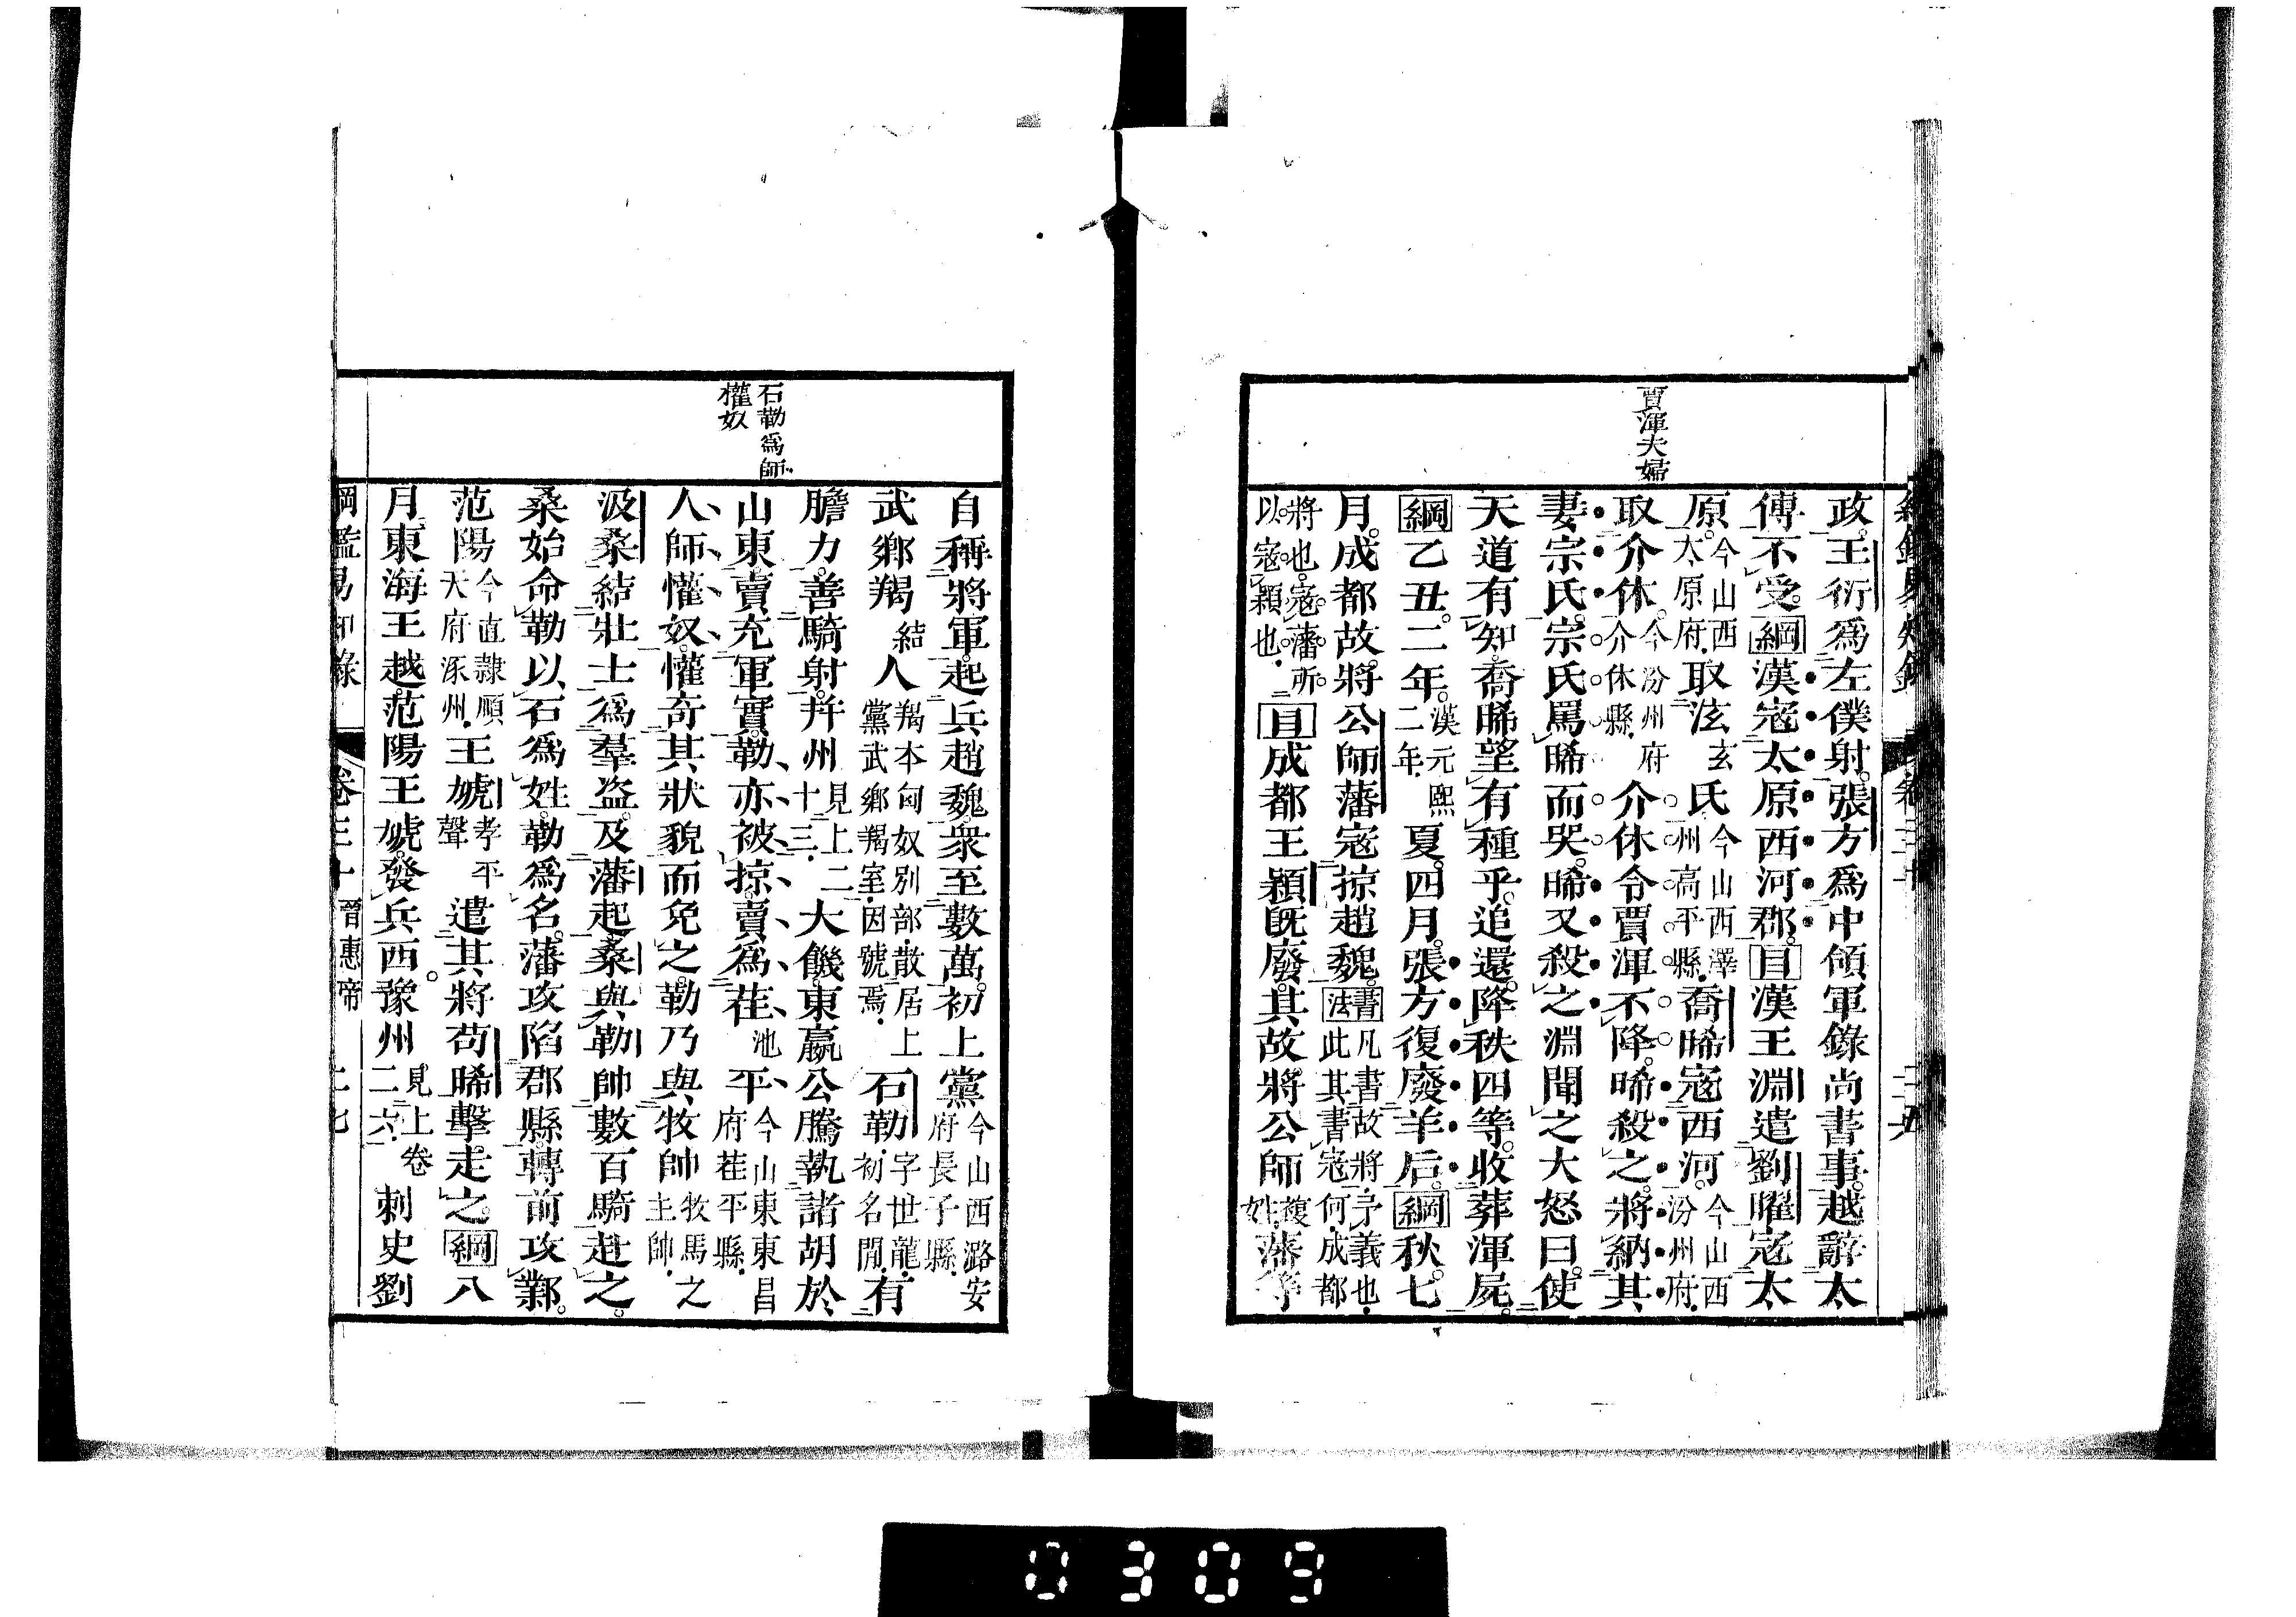 賈渾夫婦
政。王衍爲左僕射。張方爲中領軍錄尚書事。越辭太
傅不受。綱漢寇太原西河郡。目漢王淵遣劉曜寇太
原。今山西太原府。取泫玄氏今山西澤州高平縣。喬晞寇西河。今山西汾州府。
取介休。今汾州府介休縣。介休令賈渾不降。晞殺之。將納其
妻宗氏。宗氏罵晞而哭。晞又殺之淵聞之大怒曰。使
天道有知。喬晞望有種乎。追還。降秩四等。收葬渾屍。
綱乙丑。二年。漢元熙二年。夏。四月。張方復廢羊后。綱秋。七
月。成都故將公師藩寇掠趙魏。書法凡書故將。予義也。此其書寇何。成都
將也。寇。藩所以。寇。穎也。目成都王穎旣廢。其故將公師複姓。藩等
石勒爲師
懽奴
自稱將軍。起兵趙魏。衆至數萬。初上黨今山西潞安府長子縣。
武鄉羯結人羯本匈奴別部。散居上黨武鄉羯室。因號焉。石勒。字世龍。初名㔨。有
膽力。善騎射。幷州見上二十三。大饑。東嬴公騰執諸胡於
山東。賣充軍實。勒亦被掠。賣爲茌池平今山東東昌府茌平縣。
人師懽奴。懽奇其狀貌而免之勒乃與牧帥牧馬之主帥。
汲桑結壯士爲羣盜。及藩起桑與勒帥數百騎赴之。
桑始命勒以石爲姓。勒爲名。藩攻陷郡縣。轉前攻鄴。
范陽今直隸順天府涿州。王虓孝平聲遣其將苟晞擊走之。綱八
月東海王越。范陽王虓。發兵西。豫州見上卷二六。刺史劉
綱鑑易知錄 卷三十 晉惠帝